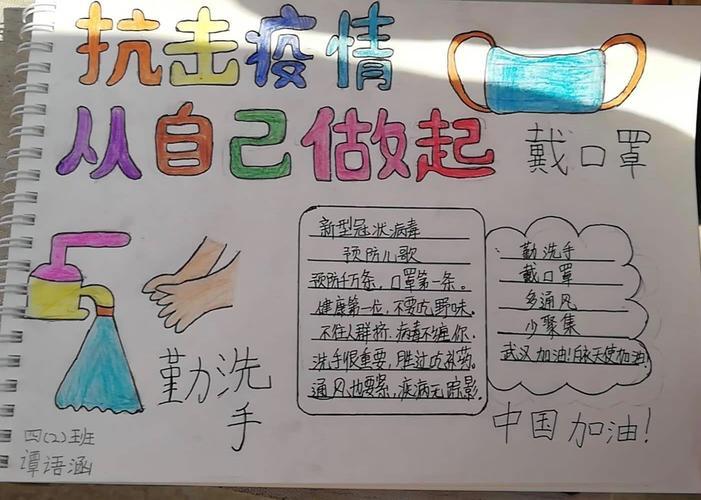 抗击疫情
从自己做起
戴口罩
新型冠状病毒
预防儿歌
预防千万条，口罩第一条。
健康第一位，不要吃野味。
不往人群挤，病毒不缠你。
洗手很重要，胜过吃补药。
通风也要紧，疾病无踪影。
勤洗手
戴口罩
多通风
少聚集
武汉加油！白衣天使加油！
勤洗手
中国加油！
四(2)班
谭语涵